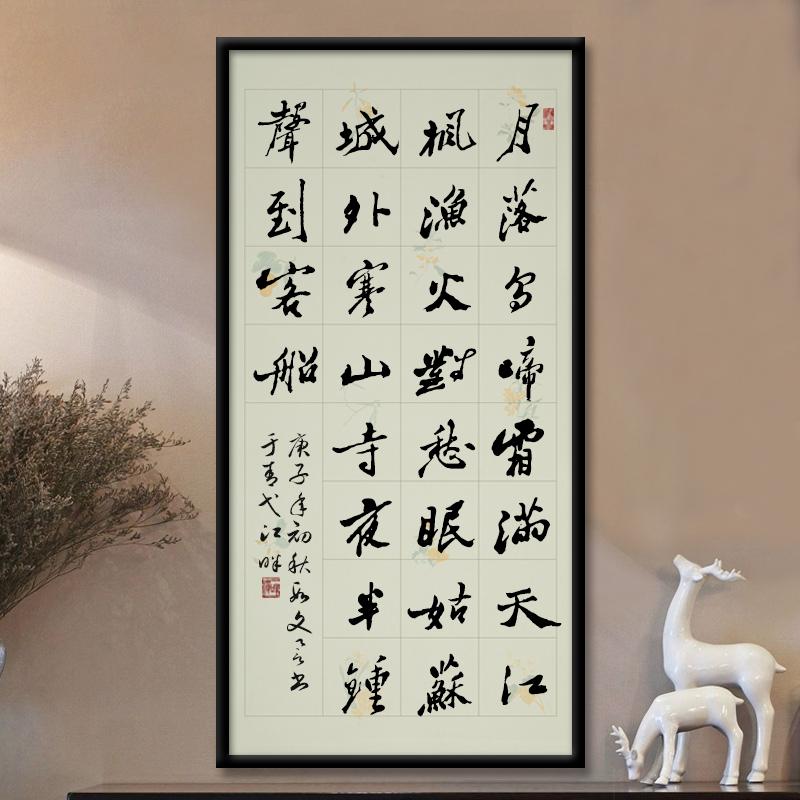 月落烏啼霜滿天江
楓漁火對愁眠姑蘇
城外寒山寺夜半鍾
聲到客船
庚子年初秋文書
于青弋江畔